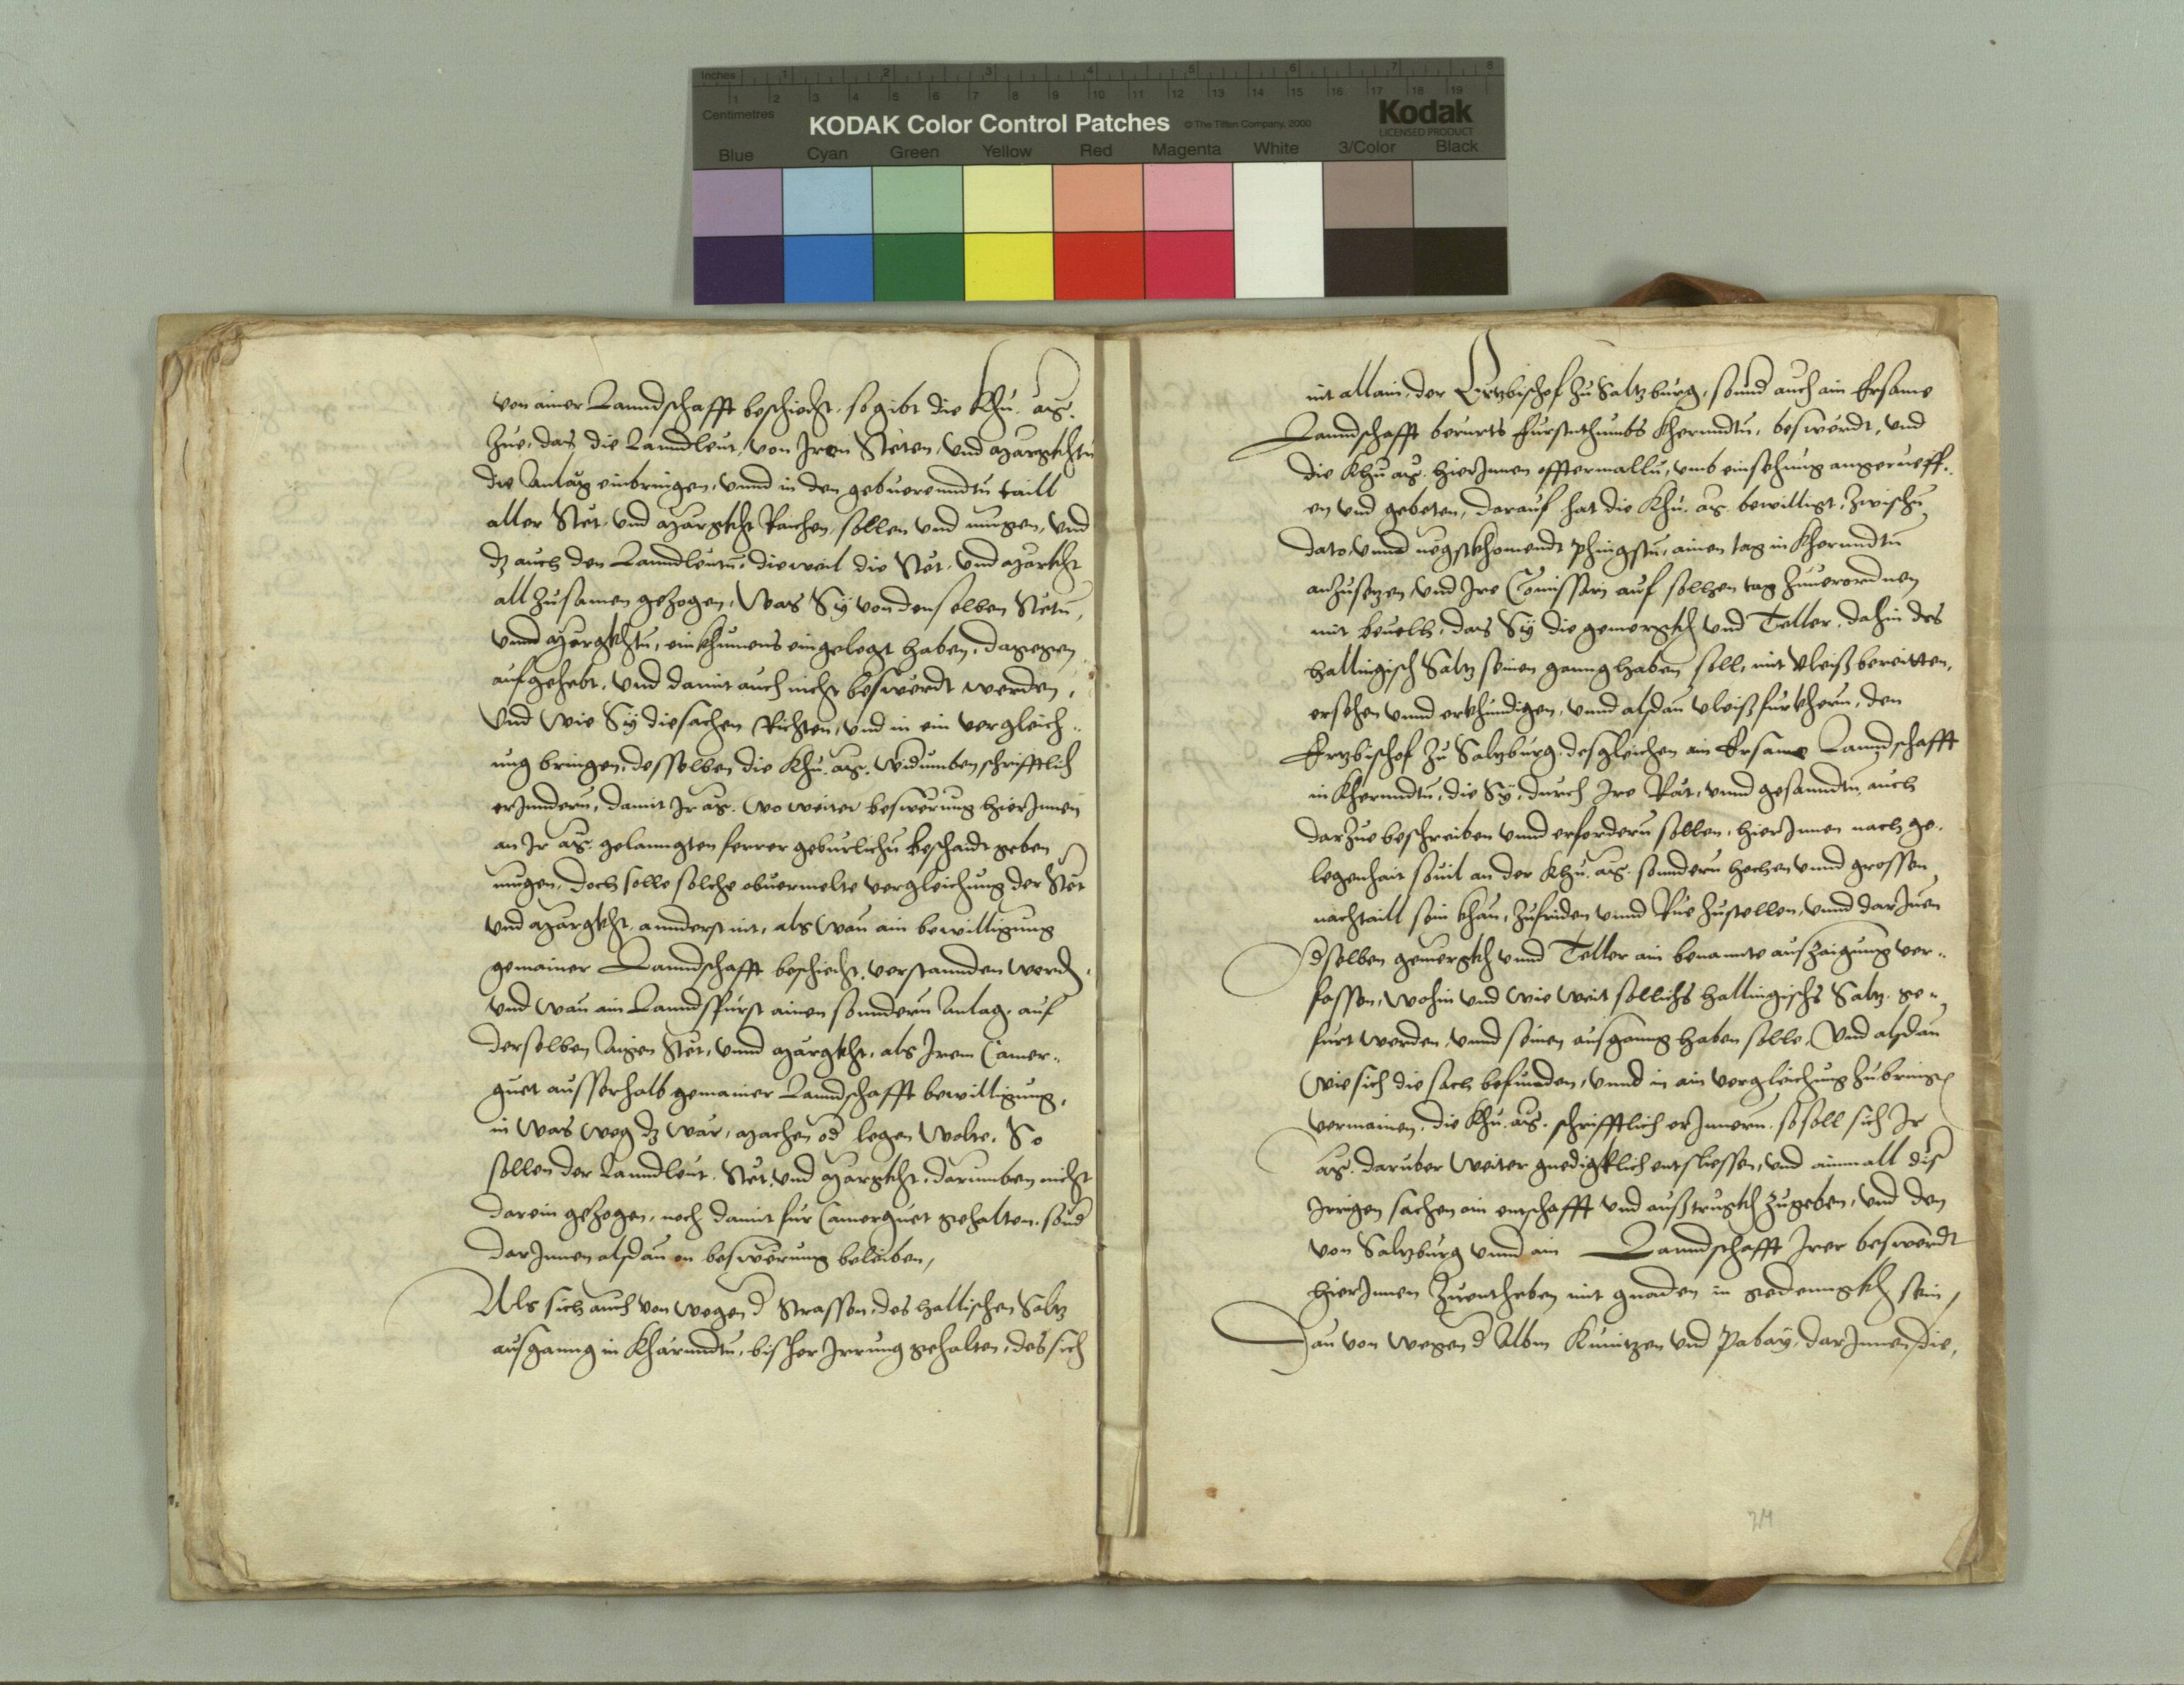 Inches 1 2 3 4 5 6 7 8
Centimetres 1 2 3 4 5 6 7 8 9 10 11 12 13 14 15 16 17 18 19
KODAK Color Control Patches © The Tiffen Company, 2000 Kodak
LICENSED PRODUCT
Blue Cyan Green Yellow Red Magenta White 3/Color Black
von ainer Lanndschafft beschicht, so gibt die Khu. Mt.
zue, das die Lanndleut, von Iren Steten, und Margkhtn
die Anlag einbringen, unnd in den gebuerenndtn taill
aller Stet, und Margkht Raichen, sollen und mugen, und
dz auch den Lanndleutn, dieweil die Stet, und Markht
all zusamen gezogen, Was Sy von denselben Stetn,
unnd Margkhtn, einkhumens eingelegt haben, dagegen
aufgehebt, und damit auch nicht beswerdt werden,
Und wie Sy die sachen Richten, und in ein vergleich-
ung bringen, desselben die Khu. Mt. widumben schrifftlich
erInndern, damit Ir Mt. wo weiter beswerung hierInnen
an Ir Mt. gelanngten ferrer geburlichn beschaidt geben
mugen, Doch solle solche obuermelte vergleichung der Stet
und Margkht, annderst nit, als wan ain bewilligung
gemainer Lanndschafft beschicht, verstannden werdn,
und wan ain Lanndsfurst ainen sonndern Anlag, auf
derselben aigen Stet, unnd Margkht, als Irem Camer-
guet ausserhalb gemainer Lanndschafft bewilligung,
in was weg dz war, Machen od legen wolte, So
sollen der Lanndleut, Stet, und Margkht, darumben nicht
darein gezogen, noch damit fur Camerguet gehalten, sond
darInnen alsdan on beswerung beleiben,
Als sich auch von wegen d Strassen, des hallischen Saltz
ausganng in Kharndtn, bisher Irrung gehalten, des sich
nit allain, der Ertzbischof zu Saltzburg, sonnd auch ain Ersame
Lanndschafft berurts Furstnthumbs Kherndtn, beswerdt, und
die Khu. Mt. hierInnen offtermalln, umb einsehung angerueff-
en und gebeten, Darauf hat die Khu. Mt. bewilligt, zwischn
dato unnd negstkhomendt Phingstn, ainen tag in Kherndtn
anzusetzen, und Ire Comissarj auf solhen tag zuuerordnen
mit beuelh, das Sy die gemergkh und Teller, dahin des
hallingisch Saltz seinen ganng haben soll, mit Vleiß bereitten,
ersehen unnd erkhundigen, unnd alsdan vleiß furkhern, den
Ertzbischof zu Saltzburg, desgleichen ain Ersame Lanndschafft
in Kherndtn, die Sy, durch Ire Rät, unnd gesanndtn, auch
darzue beschreiben unnd erfordern sollen, hierInnen nach ge-
legenhait souil an der Khu. Mt. sonndern hochen unnd grossen
nachtaill sein khan, zufriden unnd Rue zustellen, unnd darInen
dselben gemergkh unnd Teller ain benannte aufzaigung ver-
fassen, wohin und wie weit sollichs hallingischs Saltz ge-
furt werden, unnd seinen ausganng haben solle, Und alsdan
wie sich die sach befinden, unnd in ain vergleichung zubringen
vermainen, die Khu. Mt. schrifftlich erInnern, so soll sich Ir
Mt. daruber weiter gnedigklich entsliessen, und ainmall dis
Irrigen sachen ain entschafft und außtrugkh zugeben, und den
von Saltzburg unnd ain Lanndschafft Irer beswerdt
hierInnen zuentheben mit gnaden in gedenngkh sein,
Dan von wegen d Albm Kunitzen und Pabay, darInnen die,